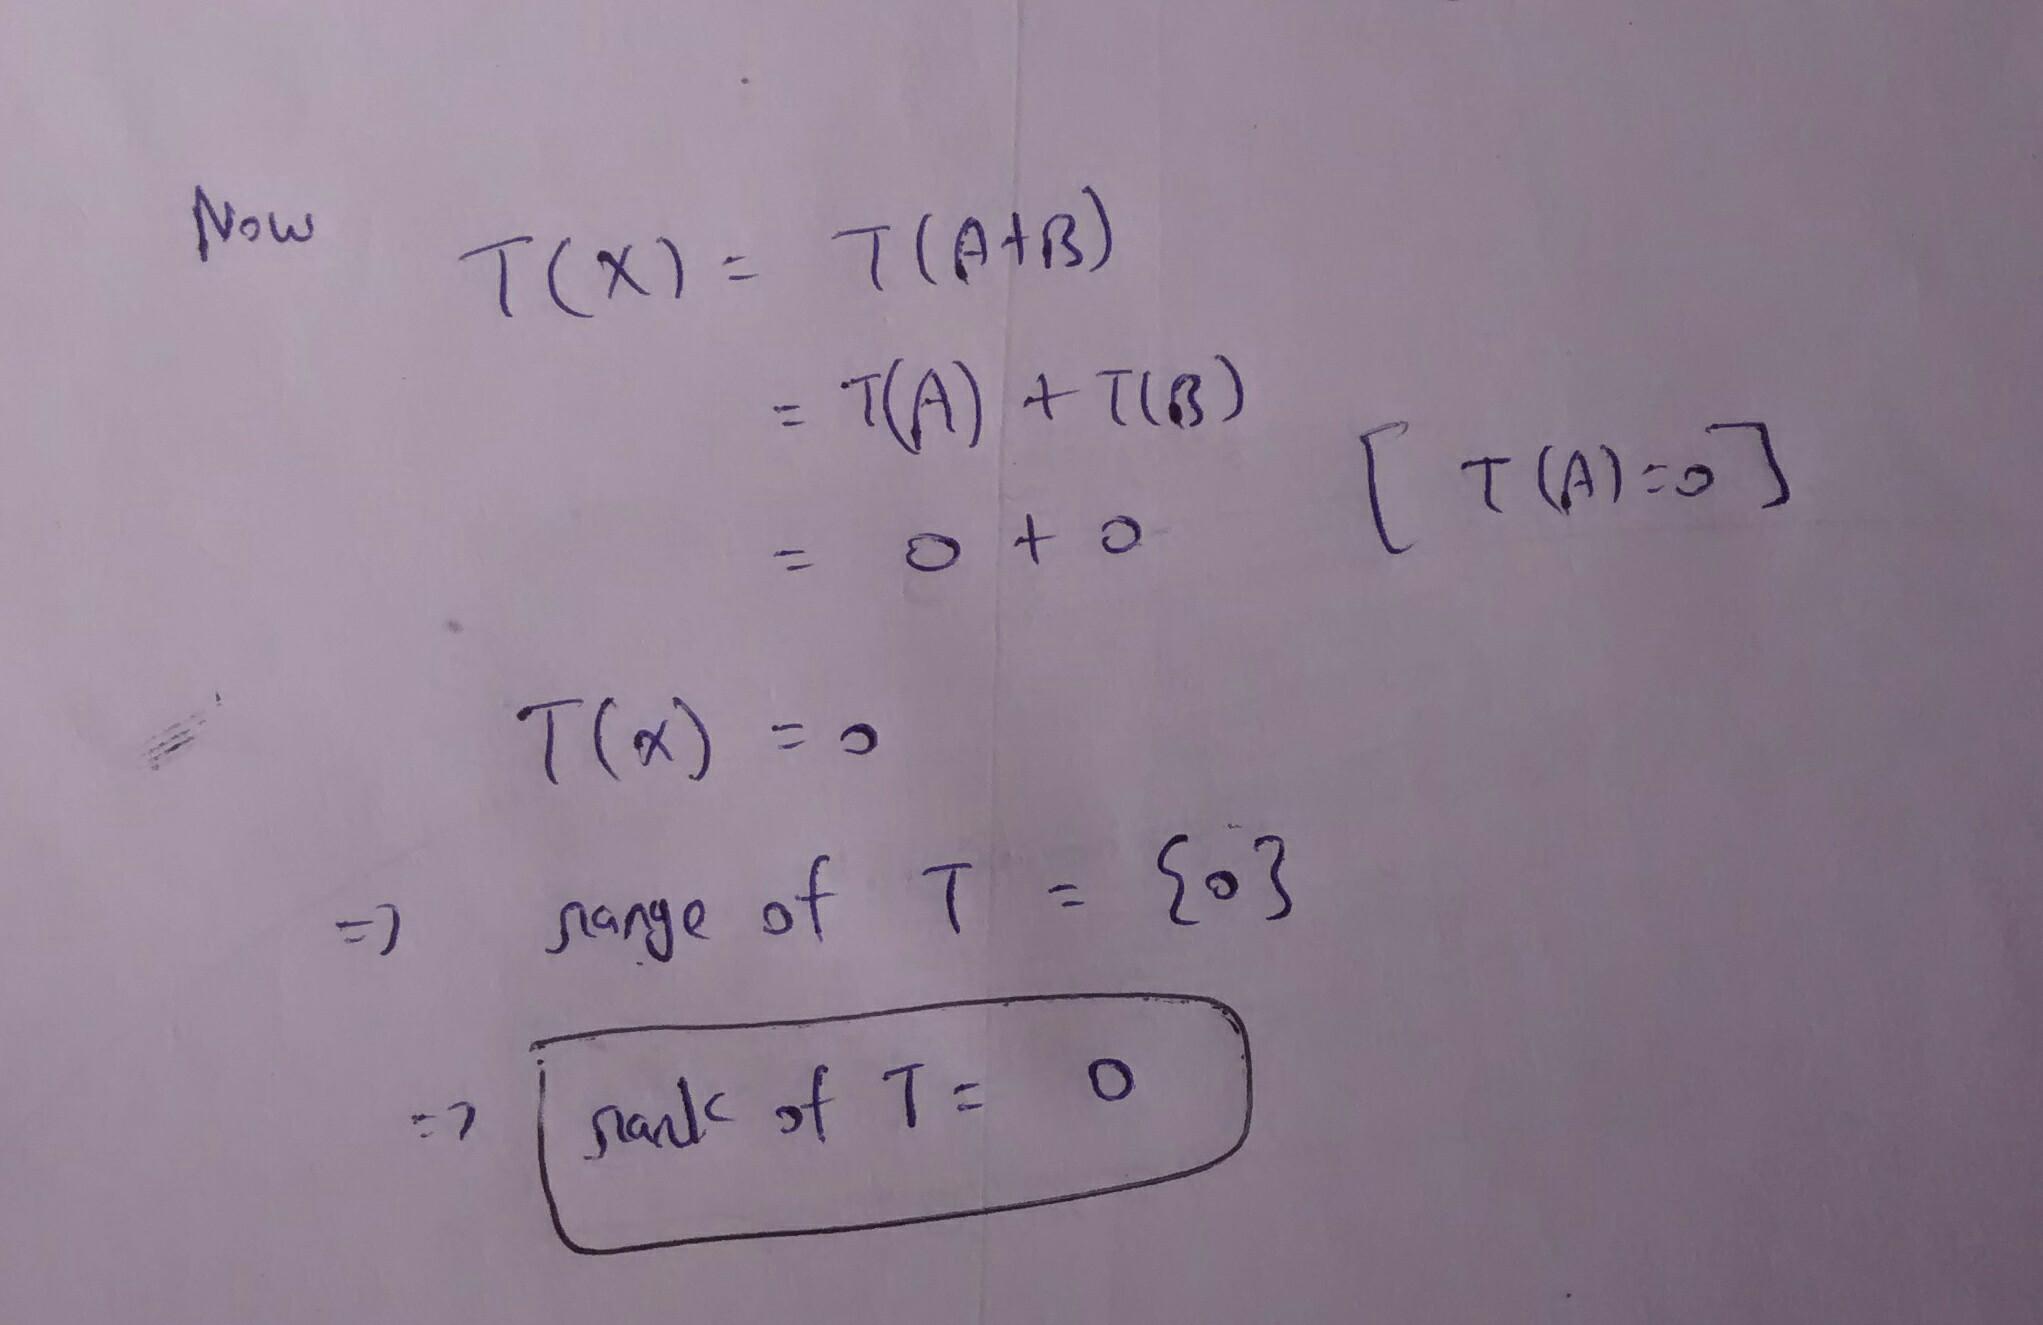 Now T(X) = T(A+B)
= T(A) + T(B)
= 0 + 0 [T(A)=0]
T(X) = 0
=> range of T = {0}
=> rank of T = 0